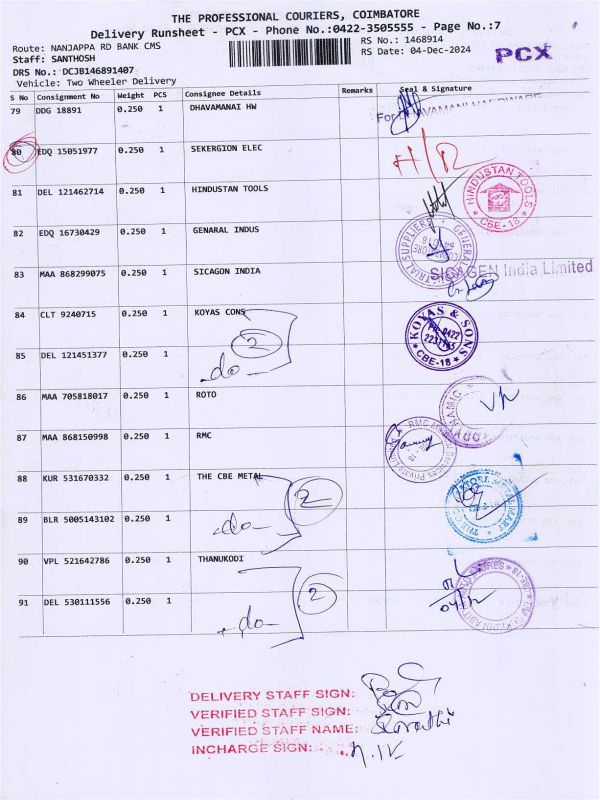 THE PROFESSIONAL COURIERS, COIMBATORE
Delivery Runsheet - PCX - Phone No.:0422-3505555 - Page No.:7
Route: NANJAPPA RD BANK CMS
RS No.: 1468914
Staff: SANTHOSH
RS Date: 04-Dec-2024
PCX
DRS No.: DCJB146891407
Vehicle: Two Wheeler Delivery
S No Consignment No Weight PCS Consignee Details Remarks Seal & Signature
79 DDG 18891 0.250 1 DHAVAMANAI HW
80 EDQ 15051977 0.250 1 SEKERGION ELEC H/R
81 DEL 121462714 0.250 1 HINDUSTAN TOOLS
HINDUSTAN TOOLS
CBE-18
82 EDQ 16730429 0.250 1 GENARAL INDUS
83 MAA 868299075 0.250 1 SICAGON INDIA
SICAGEN India Limited
84 CLT 9240715 0.250 1 KOYAS CONS
KOYAS & SONS
CBE-18
85 DEL 121451377 0.250 1 -do- 2
86 MAA 705818017 0.250 1 ROTO
87 MAA 868150998 0.250 1 RMC
88 KUR 531670332 0.250 1 THE CBE METAL
89 BLR 5005143102 0.250 1 -do- 2
90 VPL 521642786 0.250 1 THANUKODI
91 DEL 530111556 0.250 1 -do- 2
04/12
DELIVERY STAFF SIGN:
VERIFIED STAFF SIGN:
VERIFIED STAFF NAME:
INCHARGE SIGN: